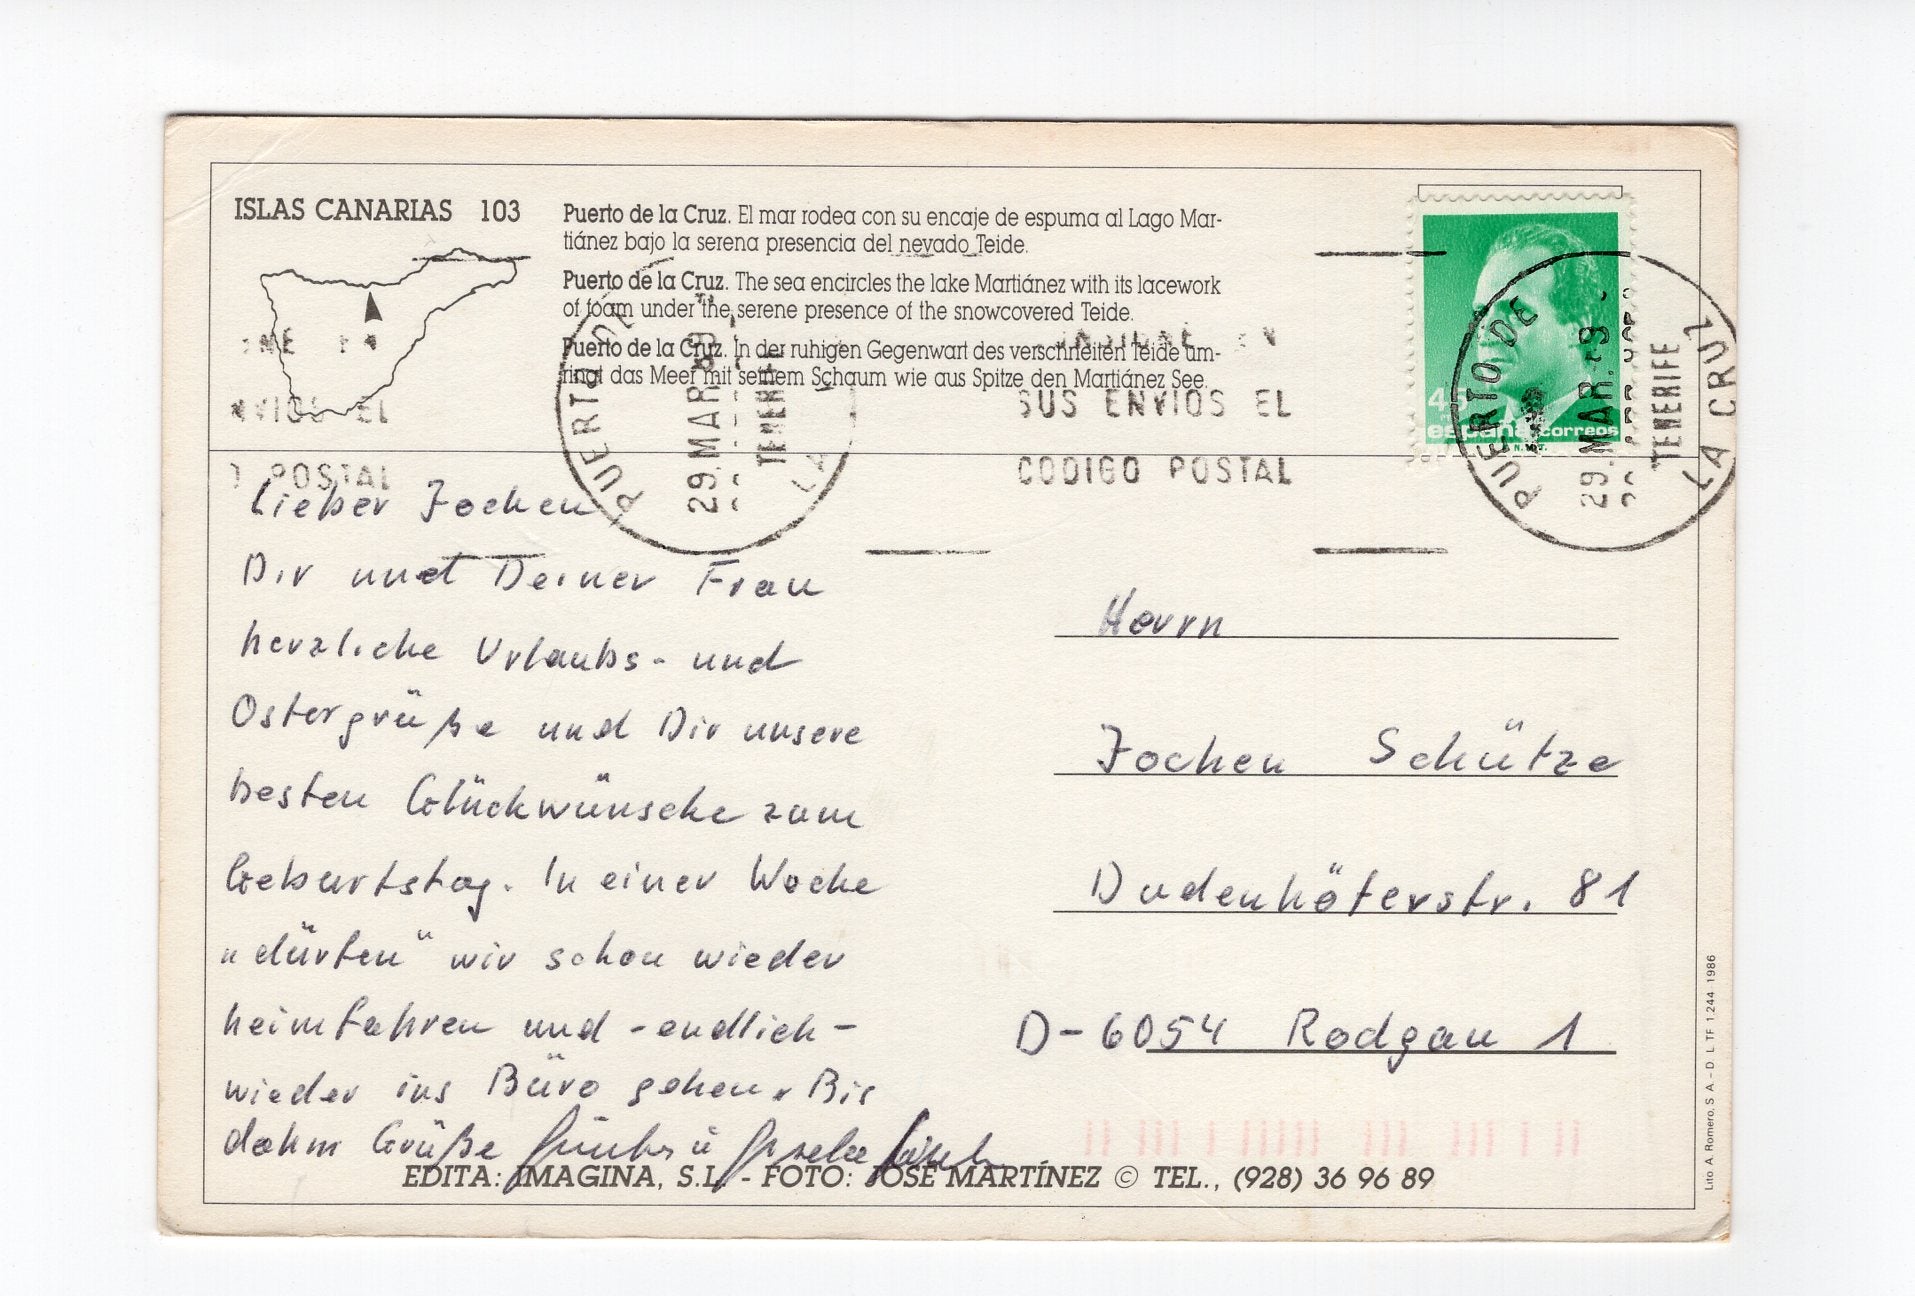 ISLAS CANARIAS 103
Puerto de la Cruz. El mar rodea con su encaje de espuma al Lago Mar-
tiánez bajo la serena presencia del nevado Teide.
Puerto de la Cruz. The sea encircles the lake Martiánez with its lacework
of foam under the serene presence of the snowcovered Teide.
Puerto de la Cruz. In der ruhigen Gegenwart des verschneiten Teide um-
ringt das Meer mit seinem Schaum wie aus Spitze den Martiánez See.
45
españa correos
PUERTO DE LA CRUZ
29.MAR.89
TENERIFE
PUERTO DE LA CRUZ
29.MAR.
TENERIFE
NVIOS EL
POSTAL
SUS ENVIOS EL
CODIGO POSTAL
Lieber Jochen
Dir und Deiner Frau
herzliche Urlaubs- und
Ostergrüße und Dir unsere
besten Glückwünsche zum
Geburtstag. In einer Woche
„dürfen“ wir schon wieder
heimfahren und - endlich -
wieder ins Büro gehen. Bis
dahin Grüße
Herrn
Jochen Schütze
Dudenhöferstr. 81
D-6054 Rodgau 1
EDITA: IMAGINA, S.L. - FOTO: JOSÉ MARTÍNEZ © TEL., (928) 36 96 89
Lito A. Romero, S. A. - D. L. TF 1.244 1986